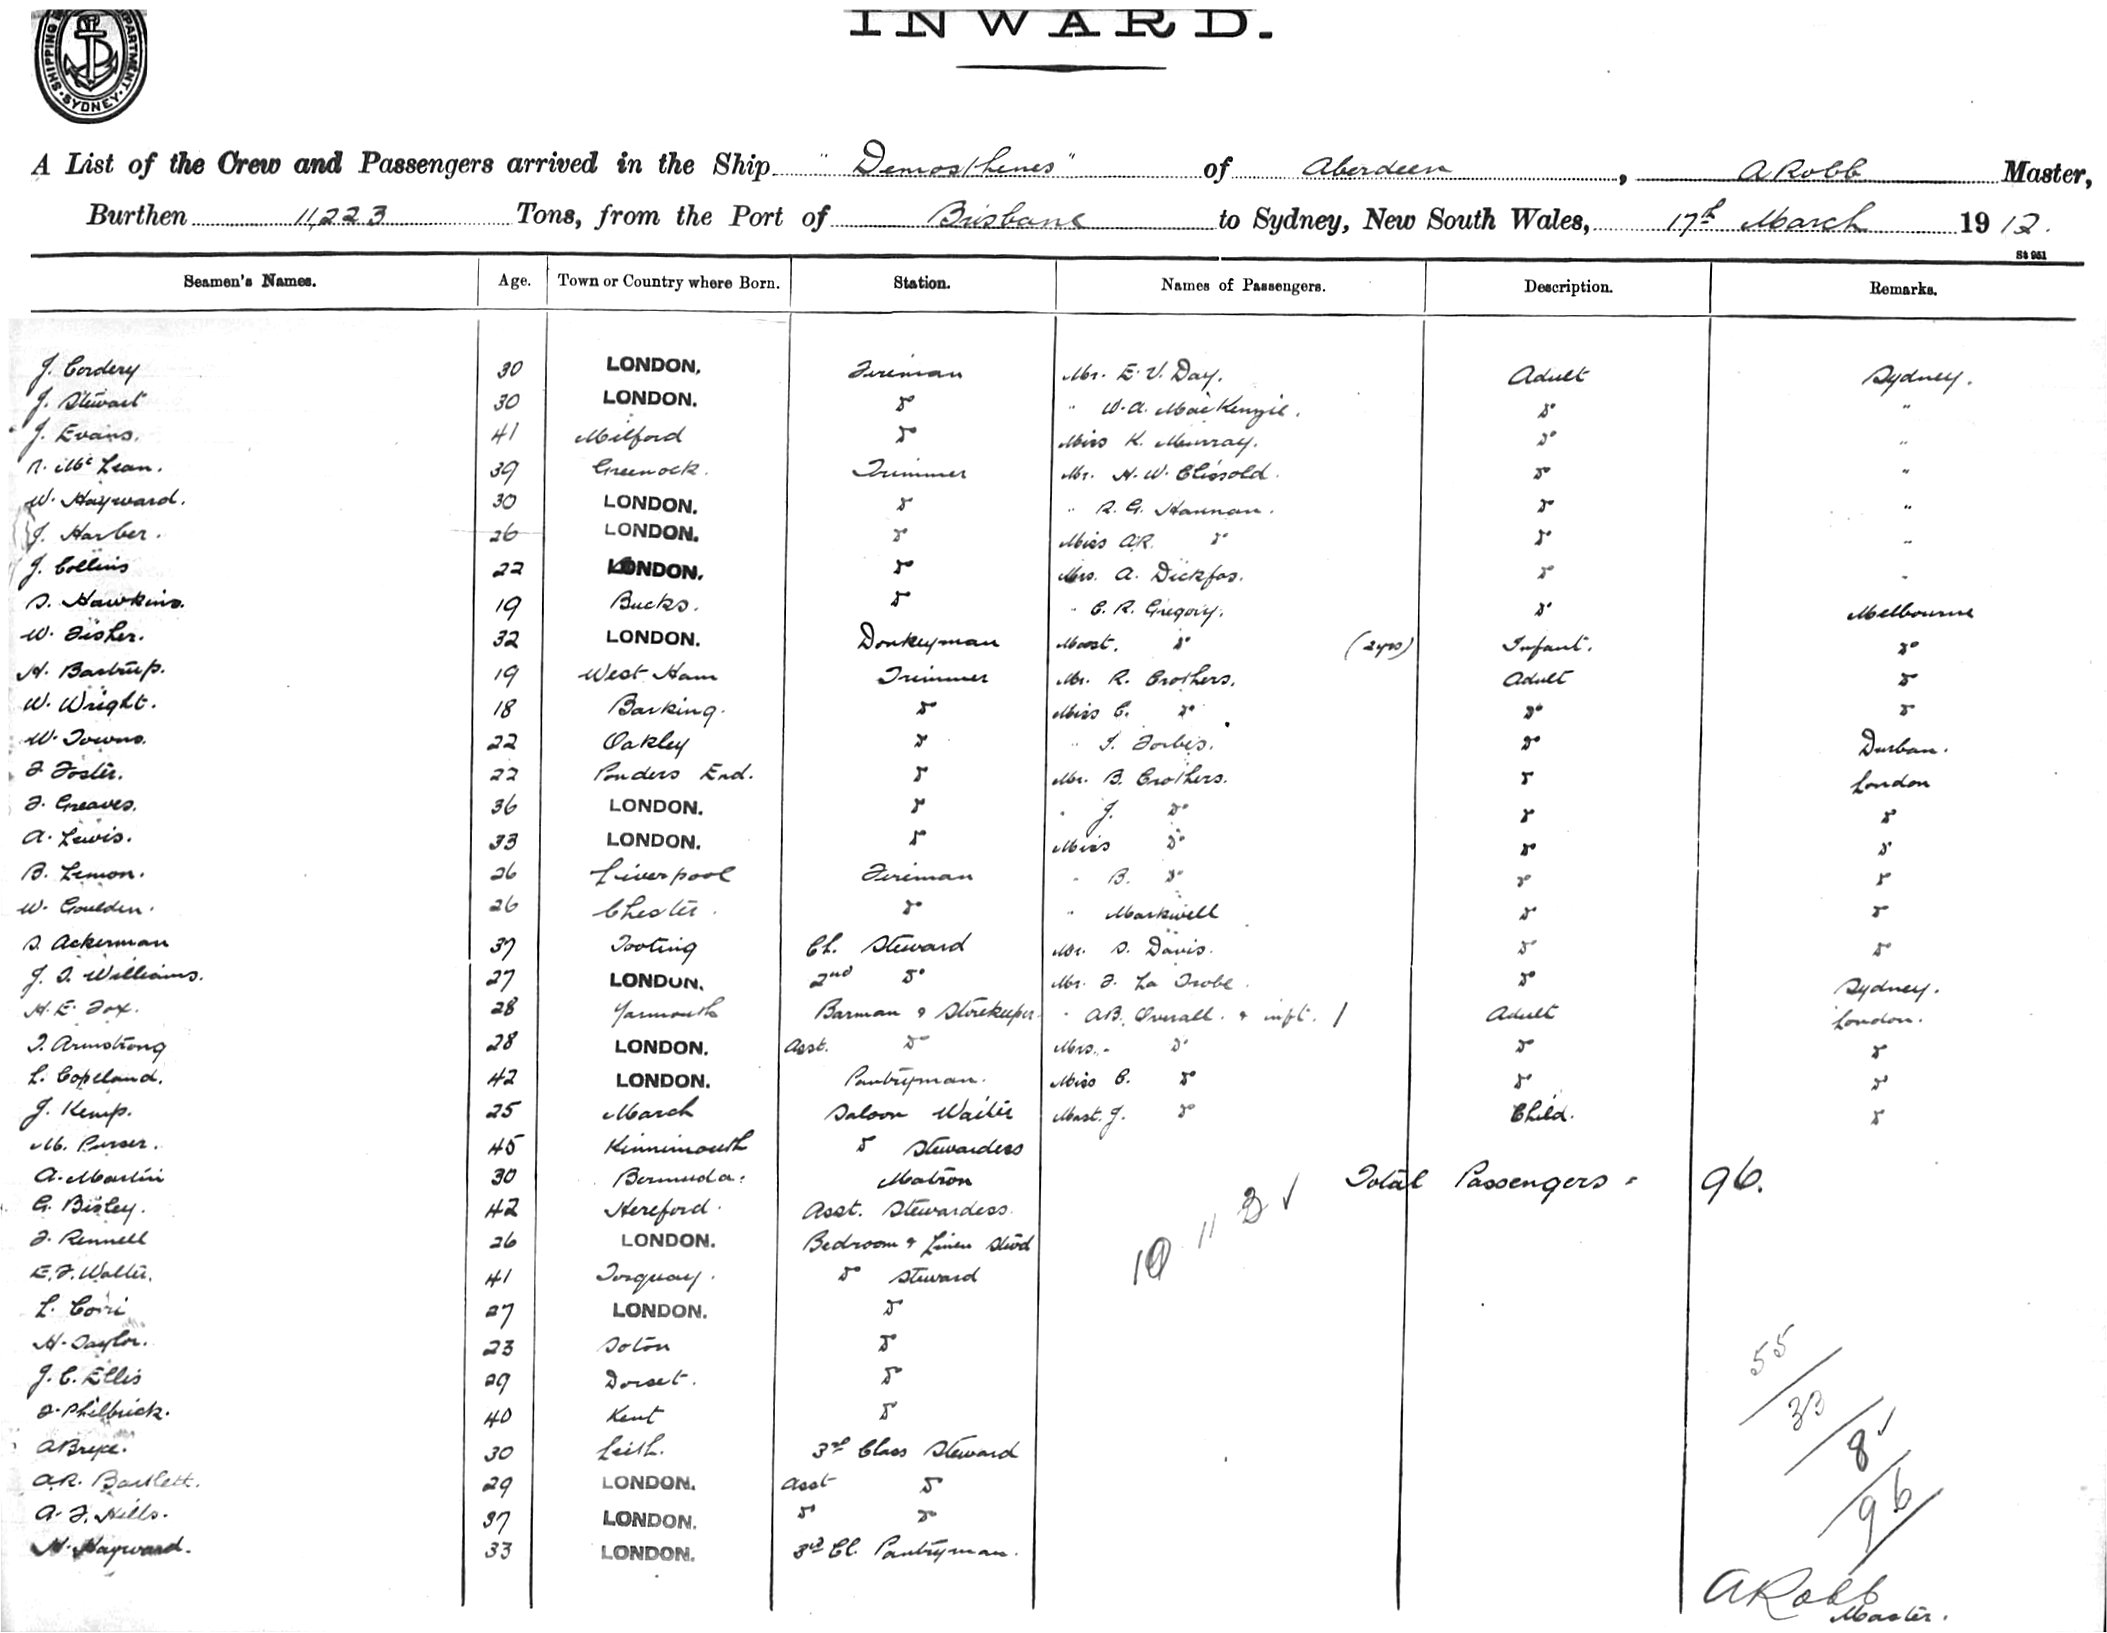 SHIPPING DEPARTMENT SYDNEY
INWARD.
A List of the Crew and Passengers arrived in the Ship "Demosthenes" of Aberdeen, A Robb Master,
Burthen 11,223 Tons, from the Port of Brisbane to Sydney, New South Wales, 17th March 1912.
St 951
Seamen's Names. Age. Town or Country where Born. Station. Names of Passengers. Description. Remarks.
J. Cordery 30 LONDON. Fireman Mr. E. V. Day. Adult Sydney.
J. Stewart 30 LONDON. Do " W. A. MacKenzie. Do "
J. Evans. 41 Milford Do Miss K. Murray. Do "
R. McLean. 39 Greenock. Trimmer Mr. H. W. Clissold. Do "
W. Hayward. 30 LONDON. Do " R. G. Hannan. Do "
J. Harber. 26 LONDON. Do Miss A.R. Do Do "
J. Collins 22 LONDON. Do Mrs. A. Dickfos. Do "
S. Hawkins. 19 Bucks. Do " C. R. Gregory. Do Melbourne
W. Fisher. 32 LONDON. Donkeyman Mast. Do (2yrs) Infant. Do
H. Bastrup. 19 West Ham Trimmer Mr. R. Crothers. Adult Do
W. Wright. 18 Barking. Do Miss C. Do Do Do
W. Towns. 22 Oakley Do " Forbes. Do Durban.
F. Foster. 22 Ponders End. Do Mr. B. Crothers. Do London
F. Greaves. 36 LONDON. Do " J. Do Do Do
A. Lewis. 33 LONDON. Do Miss Do Do Do
B. Lemon. 26 Liverpool Fireman " B. Do Do Do
W. Goulden. 26 Chester. Do " Markwell Do Do
S. Ackerman 37 Tooting Ch. Steward Mr. S. Davis. Do Do
J. T. Williams. 27 LONDON. 2nd Do Mr. F. La Trobe. Do Sydney.
H. E. Fox. 28 Yarmouth Barman & Storekeeper " A.B. Overall. & inft. 1 Adult London.
T. Armstrong 28 LONDON. Asst. Do Mrs. " Do Do Do
L. Copeland. 42 LONDON. Pantryman. Miss C. Do Do Do
J. Kemp. 25 March Saloon Waiter Mast. J. Do Child. Do
M. Purser. 45 Kinnimouth Do Stewardess
A. Martin 30 Bermuda. Matron Total Passengers - 96.
G. Bisley. 42 Hereford. Asst. Stewardess. 10 11 3 ✓
F. Rennell 26 LONDON. Bedroom & Linen Stwd
E. F. Walter. 41 Torquay. Do Steward
L. Corri 27 LONDON. Do
H. Taylor. 23 Soton Do
J. C. Ellis 29 Dorset. Do 55
F. Philbrick. 40 Kent Do 33
30 Leith. 3rd Class Steward 8
A.R. Bartlett. 29 LONDON. Asst Do 96
A. F. Hills. 37 LONDON. Do Do
H. Hayward. 33 LONDON. 3rd Cl. Pantryman.
A Robb
Master.